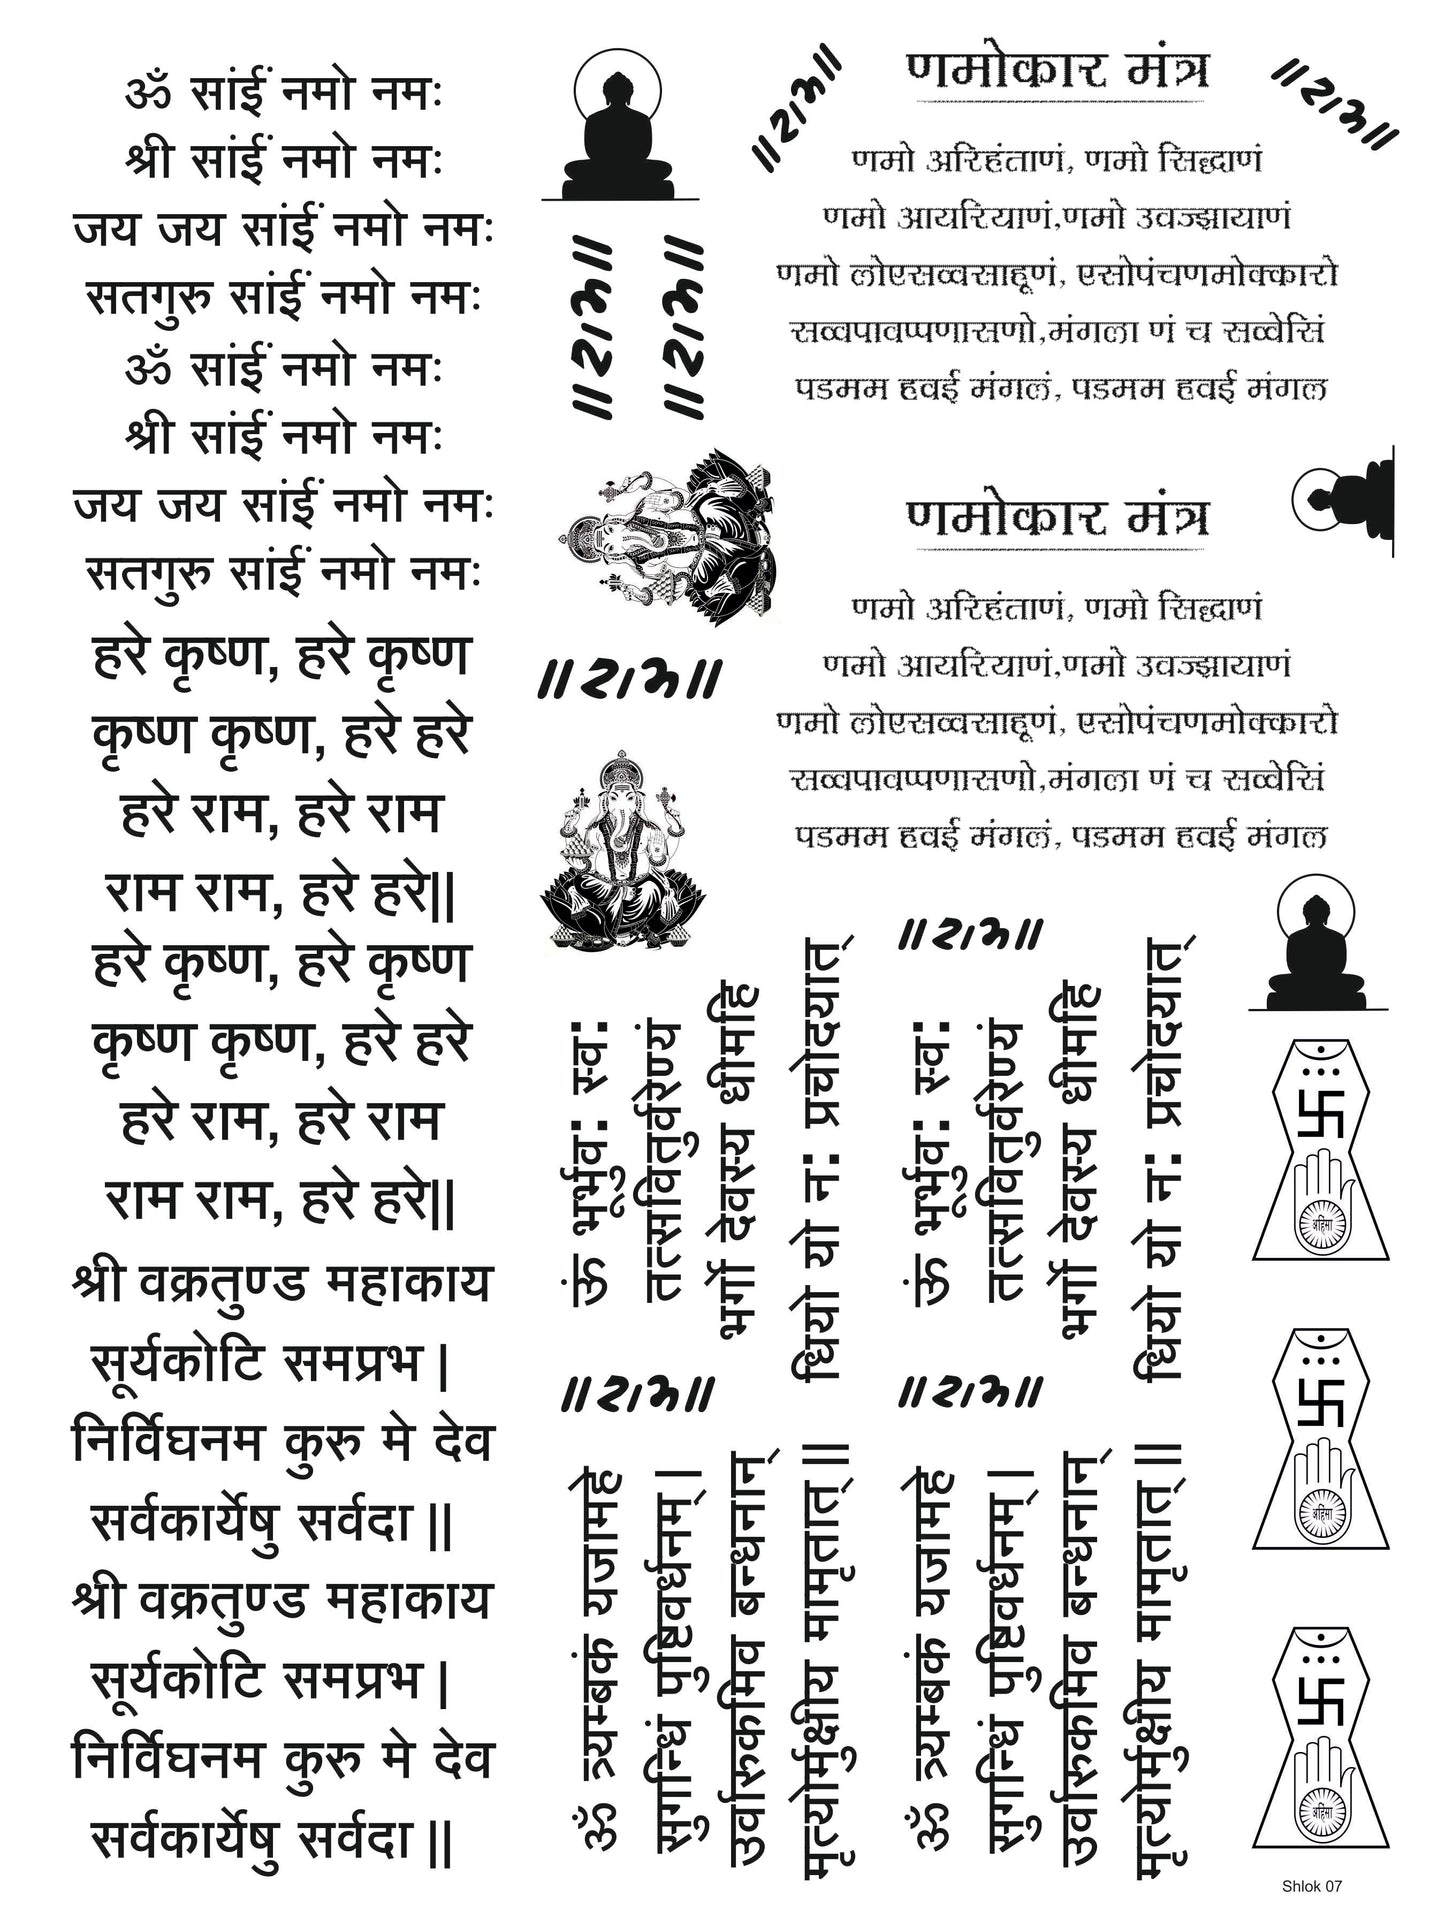 ॐ सांईं नमो नमः
श्री सांईं नमो नमः
जय जय सांईं नमो नमः
सतगुरु सांईं नमो नमः
ॐ सांईं नमो नमः
श्री सांईं नमो नमः
जय जय सांईं नमो नमः
सतगुरु सांईं नमो नमः
हरे कृष्ण, हरे कृष्ण
कृष्ण कृष्ण, हरे हरे
हरे राम, हरे राम
राम राम, हरे हरे||
हरे कृष्ण, हरे कृष्ण
कृष्ण कृष्ण, हरे हरे
हरे राम, हरे राम
राम राम, हरे हरे||
श्री वक्रतुण्ड महाकाय
सूर्यकोटि समप्रभ|
निर्विघनम कुरु मे देव
सर्वकार्येषु सर्वदा॥
श्री वक्रतुण्ड महाकाय
सूर्यकोटि समप्रभ|
निर्विघनम कुरु मे देव
सर्वकार्येषु सर्वदा॥
॥राम॥
॥राम॥
॥राम॥
॥राम॥
॥राम॥
णमोकार मंत्र
णमो अरिहंताणं, णमो सिद्धाणं
णमो आयरियाणं,णमो उवज्झायाणं
णमो लोएसव्वसाहूणं, एसोपंचणमोक्कारो
सव्वपावप्पणासणो,मंगला णं च सव्वेसिं
पडमम हवई मंगलं, पडमम हवई मंगल
णमोकार मंत्र
णमो अरिहंताणं, णमो सिद्धाणं
णमो आयरियाणं,णमो उवज्झायाणं
णमो लोएसव्वसाहूणं, एसोपंचणमोक्कारो
सव्वपावप्पणासणो,मंगला णं च सव्वेसिं
पडमम हवई मंगलं, पडमम हवई मंगल
ऊं भूर्भुव: स्व:
तत्सवितुर्वरेण्यं
भर्गो देवस्य धीमहि
धियो यो न: प्रचोदयात्
॥राम॥
ऊं भूर्भुव: स्व:
तत्सवितुर्वरेण्यं
भर्गो देवस्य धीमहि
धियो यो न: प्रचोदयात्
॥राम॥
ॐ त्रयम्बकं यजामहे
सुगन्धिं पुष्टिवर्धनम्|
उर्वारुकमिव बन्धनान्
मृत्योर्मुक्षीय मामृतात्॥
॥राम॥
ॐ त्रयम्बकं यजामहे
सुगन्धिं पुष्टिवर्धनम्|
उर्वारुकमिव बन्धनान्
मृत्योर्मुक्षीय मामृतात्॥
अहिंसा
अहिंसा
अहिंसा
Shlok 07